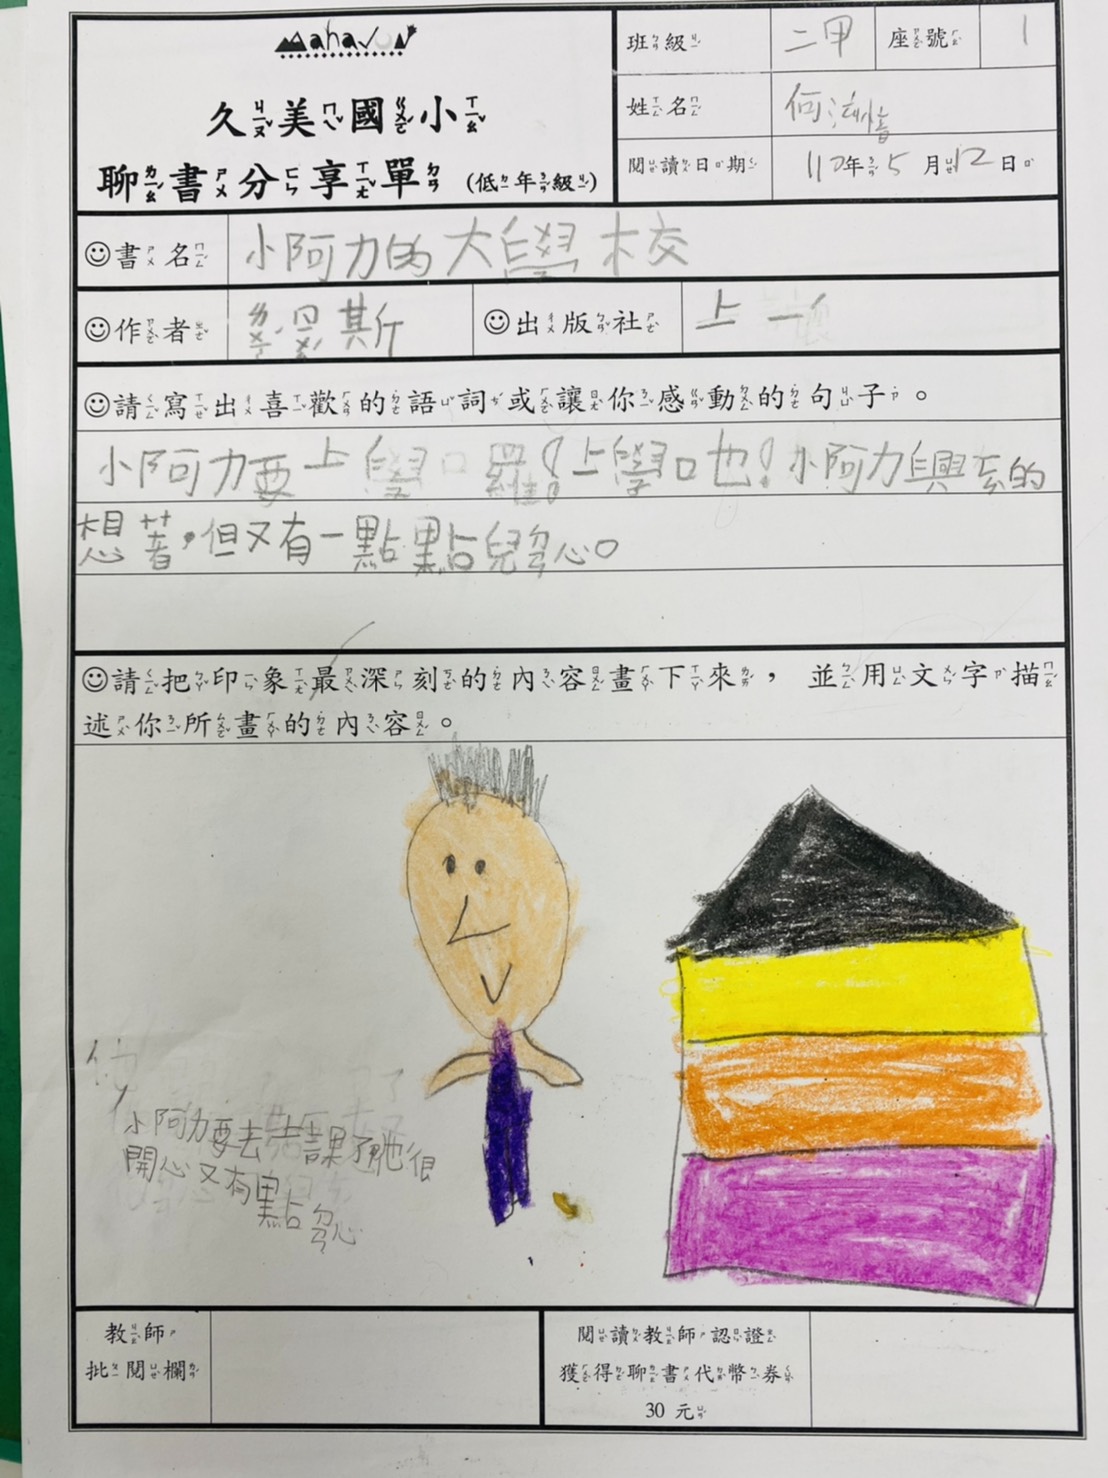 Mahavun
久美國小
聊書分享單 (低年級)
班級 二甲 座號 1
姓名 何
閱讀日期 110年5月12日
☺書名 小阿力的大學校
☺作者 其斤 ☺出版社 上一
☺請寫出喜歡的語詞或讓你感動的句子。
小阿力要上學囉!上學口也!小阿力興奮的
想著,但又有一點點兒ㄉㄢ心。
☺請把印象最深刻的內容畫下來, 並用文字描
述你所畫的內容。
小阿力要去上課了他很
開心又有點ㄉㄢ心
教師
批閱欄
閱讀教師認證
獲得聊書代幣券
30 元